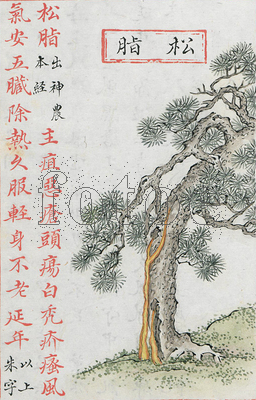 松脂
松脂出神農本経主疽惡瘡頭瘍白禿疥瘙風
氣安五臟除熱久服軽身不老延年以上朱字